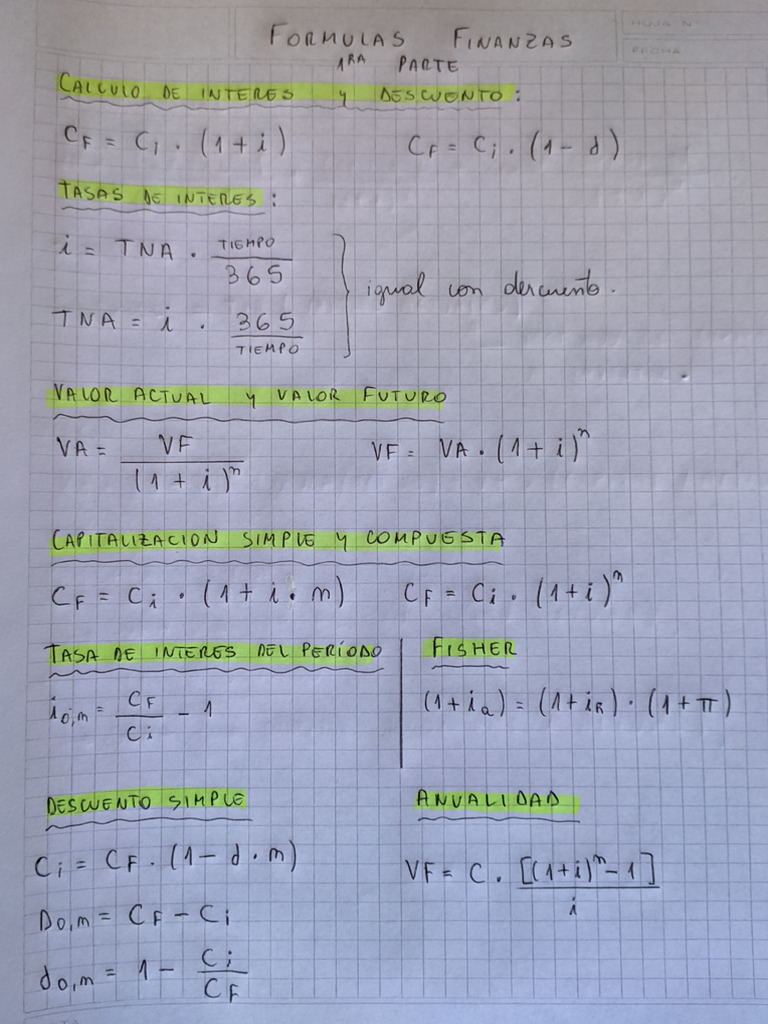 HOJA N
FECHA
FORMULAS FINANZAS
1RA PARTE
CALCULO DE INTERES y DESCUENTO:
CF = Ci . (1 + i) CF = Ci . (1 - d)
TASAS DE INTERES:
i = TNA . TIEMPO / 365
TNA = i . 365 / TIEMPO
igual con descuento.
VALOR ACTUAL y VALOR FUTURO
VA = VF / (1 + i)^n VF = VA . (1 + i)^n
CAPITALIZACION SIMPLE y COMPUESTA
CF = Ci . (1 + i . n) CF = Ci . (1+i)^n
TASA DE INTERES DEL PERÍODO
i0,n = CF / Ci - 1
FISHER
(1+ia) = (1+iR) . (1+π)
DESCUENTO SIMPLE
Ci = CF . (1 - d . n)
D0,n = CF - Ci
d0,n = 1 - Ci / CF
ANUALIDAD
VF = C . [(1+i)^n - 1] / i